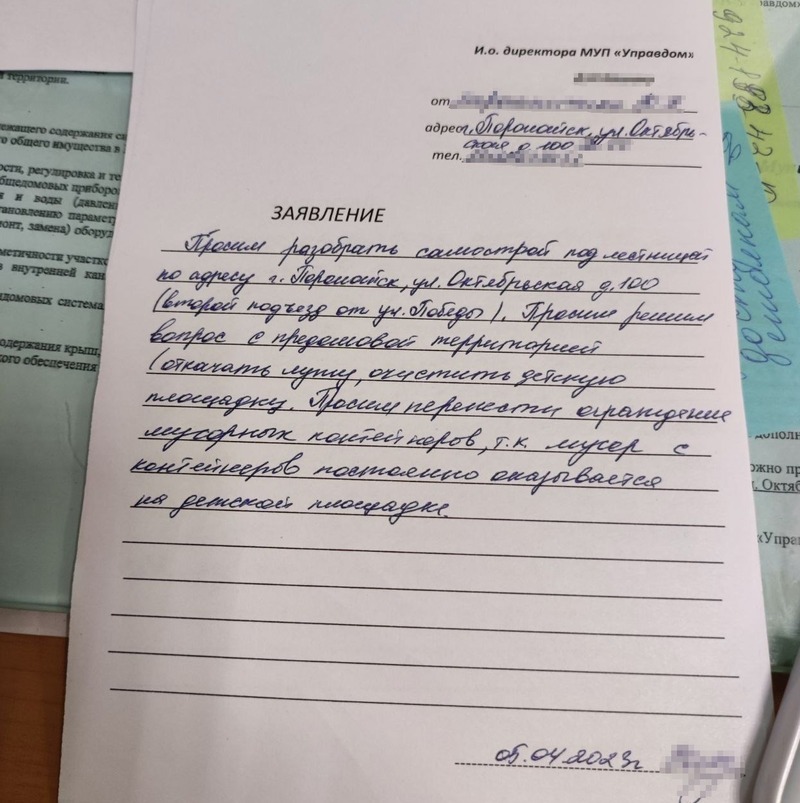 И.о. директора МУП «Управдом»
от
адрес г. Поронайск, ул. Октябрь-
ская д. 100
тел.
ЗАЯВЛЕНИЕ
Просим разобрать самострой под лестницей
по адресу г. Поронайск, ул. Октябрьская д. 100
(второй подъезд от ул. Победы). Просим решить
вопрос с придомовой территорией
(откачать лужу, очистить детскую
площадку. Просим перенести ограждение
мусорных контейнеров, т.к. мусор с
контейнеров постоянно оказывается
на детской площадке.
05.04.2023г
территории.
лежащего содержания
го общего имущества в
ости, регулировка и
бщедомовых приборов
и воды (давлени
тановлению парамет
монт, замена) оборуд
метичности участко
внутренней кан
домовых система
одержания крыш,
кого обеспечения
дополн
ожно пр
, Октяб
«Управ